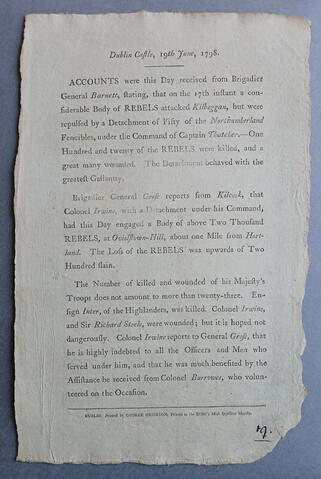 Dublin Castle, 19th June, 1798.
ACCOUNTS were this Day received from Brigadier
General Barnett, stating, that on the 17th instant a con-
siderable Body of REBELS attacked Kilbeggan, but were
repulsed by a Detachment of Fifty of the Northumberland
Fencibles, under the Command of Captain Thatcher.—One
Hundred and twenty of the REBELS were killed, and a
great many wounded. The Detachment behaved with the
greatest Gallantry.
Brigadier General Grose reports from Kilcock, that
Colonel Irwine, with a Detachment under his Command,
had this Day engaged a Body of above Two Thousand
REBELS, at Ovidstown-Hill, about one Mile from Hort-
land. The Loss of the REBELS was upwards of Two
Hundred slain.
The Number of killed and wounded of his Majesty's
Troops does not amount to more than twenty-three. En-
sign Inter, of the Highlanders, was killed. Colonel Irwine,
and Sir Richard Steele, were wounded; but it is hoped not
dangerously. Colonel Irwine reports to General Grose, that
he is highly indebted to all the Officers and Men who
served under him, and that he was much benefited by the
Assistance he received from Colonel Burrows, who volun-
teered on the Occasion.
DUBLIN: Printed by GEORGE GRIERSON, Printer to the KING's Most Excellent Majesty.